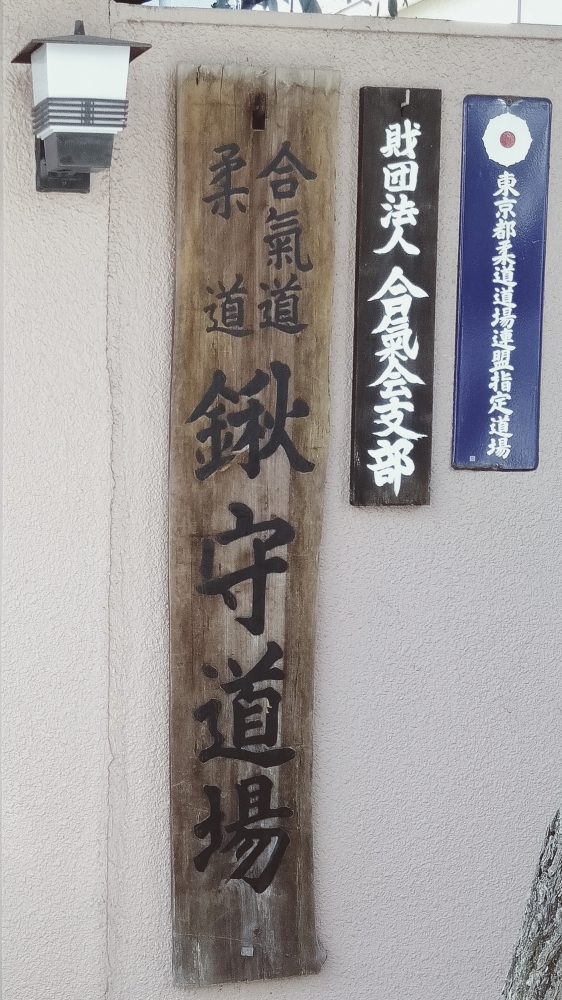 東京都柔道道場連盟指定道場
財団法人 合氣会支部
合氣道
柔道
鍬守道場